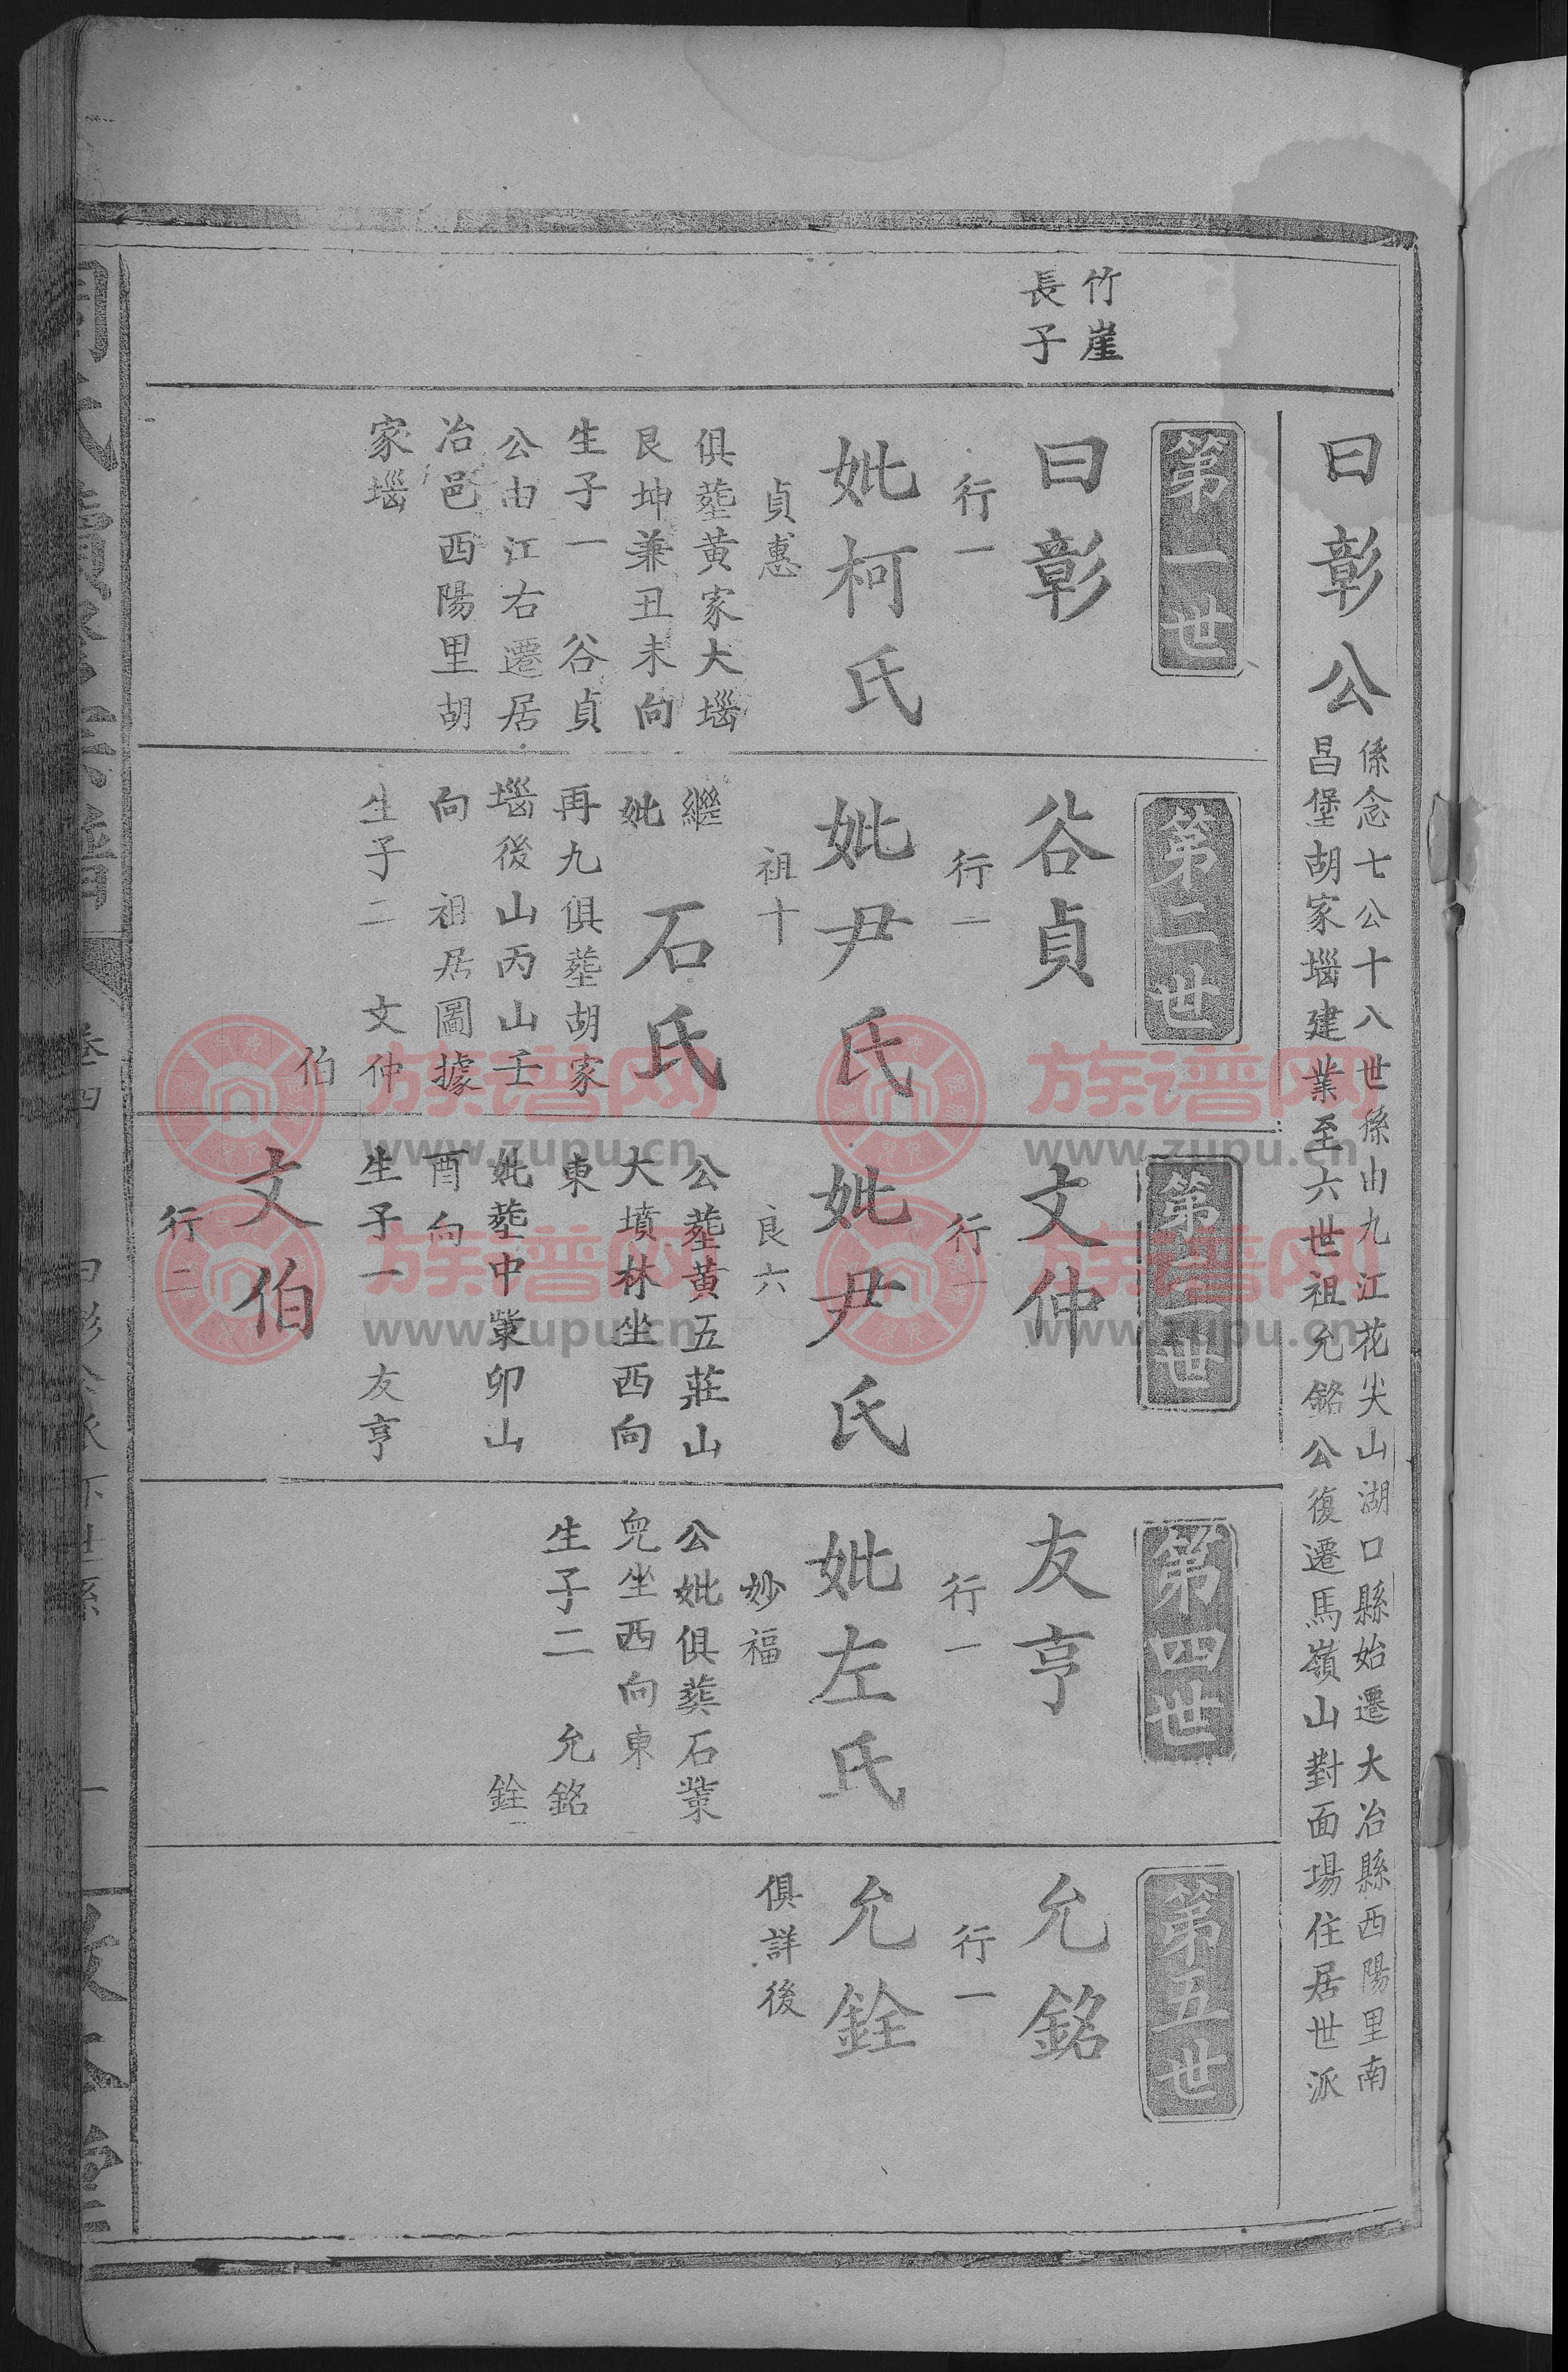 曰彰公
係念七公十八世孫由九江花尖山湖口縣始遷大冶縣西陽里南
昌堡胡家堖建業至六世祖允銘公復遷馬嶺山對面場住居世派
竹崖
長子
第一世
曰彰
行一
妣柯氏
貞惠
俱塟黄家大堖
艮坤兼丑未向
生子一 谷貞
公由江右遷居
冶邑西陽里胡
家堖
第二世
谷貞
行一
妣尹氏
祖十
繼
妣 石氏
再九俱塟胡家
堖後山丙山壬
向 祖居圖據
生子二 文仲
伯
第三世
文仲
行一
妣尹氏
良六
公塟黄五莊山
大墳林坐西向
東
妣塟中窠卯山
酉向
生子一 友亨
文伯
行二
第四世
友亨
行一
妣左氏
妙福
公妣俱葬石窠
兜坐西向東
生子二 允銘
銓
第五世
允銘
行一
允銓
俱詳後
卷四
族谱网
www.zupu.cn
族谱网
www.zupu.cn
族谱网
www.zupu.cn
族谱网
www.zupu.cn